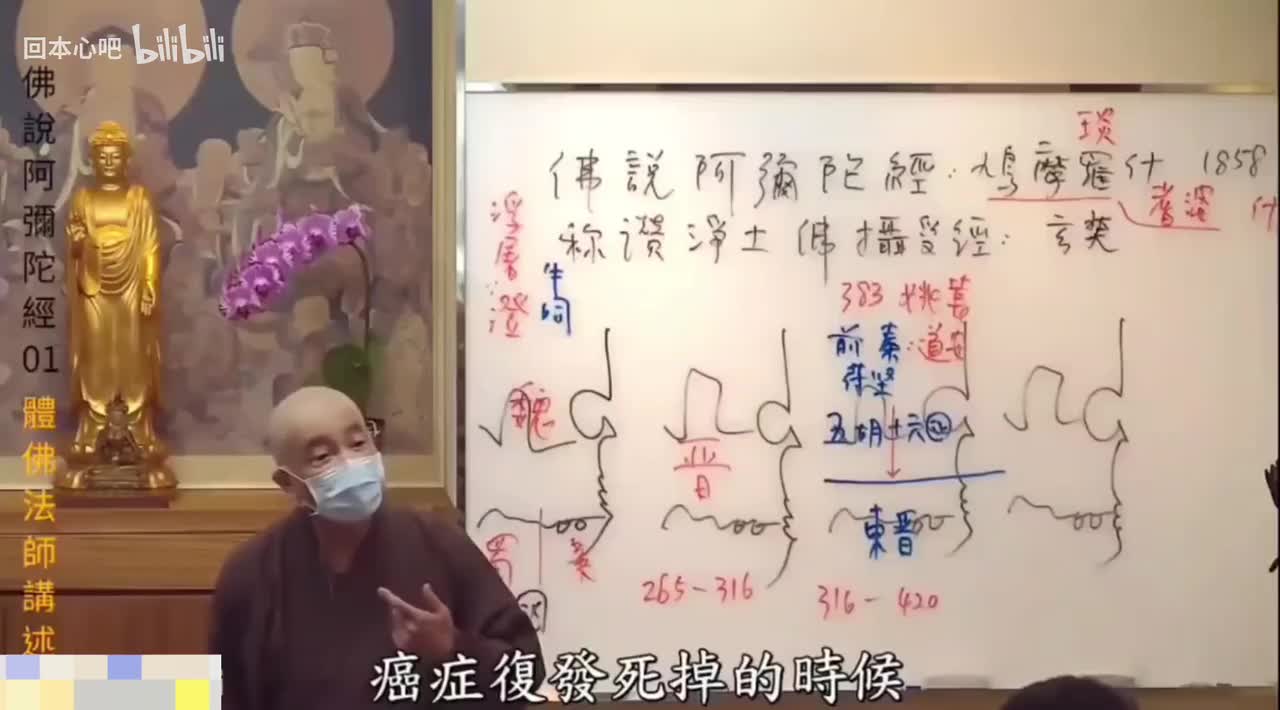 回本心吧 bilibili
佛說阿彌陀經01
體佛法師講述
琰
佛說阿彌陀經:鳩摩羅什 1858
耆婆 什
稱讚淨土佛攝受經:玄奘
浮屠澄
383 姚萇
前秦:道安
苻堅
五胡十六
魏
晉
東晉
蜀
265-316
316-420
癌症復發死掉的時候